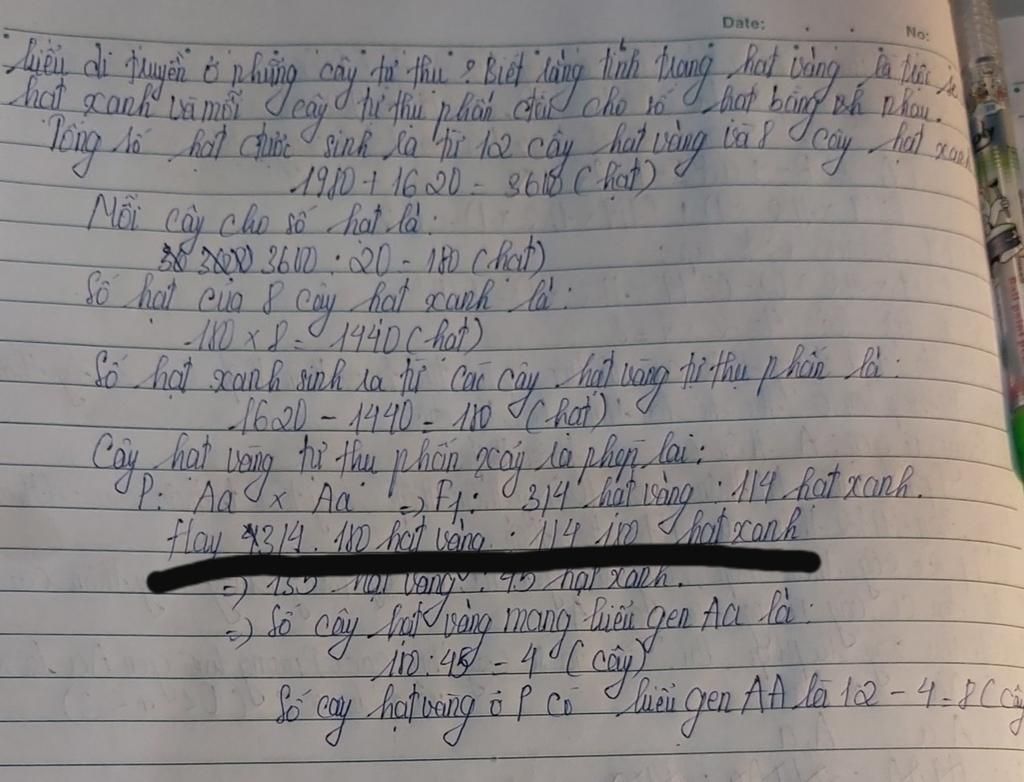 Date: No:
kiểu di truyền ở những cây tự thụ? Biết rằng tính trạng hạt vàng là trội so
hạt xanh và mỗi cây tự thụ phấn đều cho số hạt bằng nhau.
Tổng số hạt được sinh ra từ 12 cây hạt vàng và 8 cây hạt xanh
1980 + 1620 = 3600 (hạt)
Mỗi cây cho số hạt là:
3600 : 20 = 180 (hạt)
Số hạt của 8 cây hạt xanh là:
180 x 8 = 1440 (hạt)
Số hạt xanh sinh ra từ các cây hạt vàng tự thụ phấn là:
1620 - 1440 = 180 (hạt)
Cây hạt vàng tự thụ phấn xảy ra phép lai:
P: Aa x Aa => F1: 3/4 hạt vàng : 1/4 hạt xanh.
Hay 3/4 . 180 hạt vàng : 1/4 180 hạt xanh
=> 135 hạt vàng : 45 hạt xanh.
=> Số cây hạt vàng mang kiểu gen Aa là:
180 : 45 = 4 (cây)
Số cây hạt vàng ở P có kiểu gen AA là 12 - 4 = 8 (cây